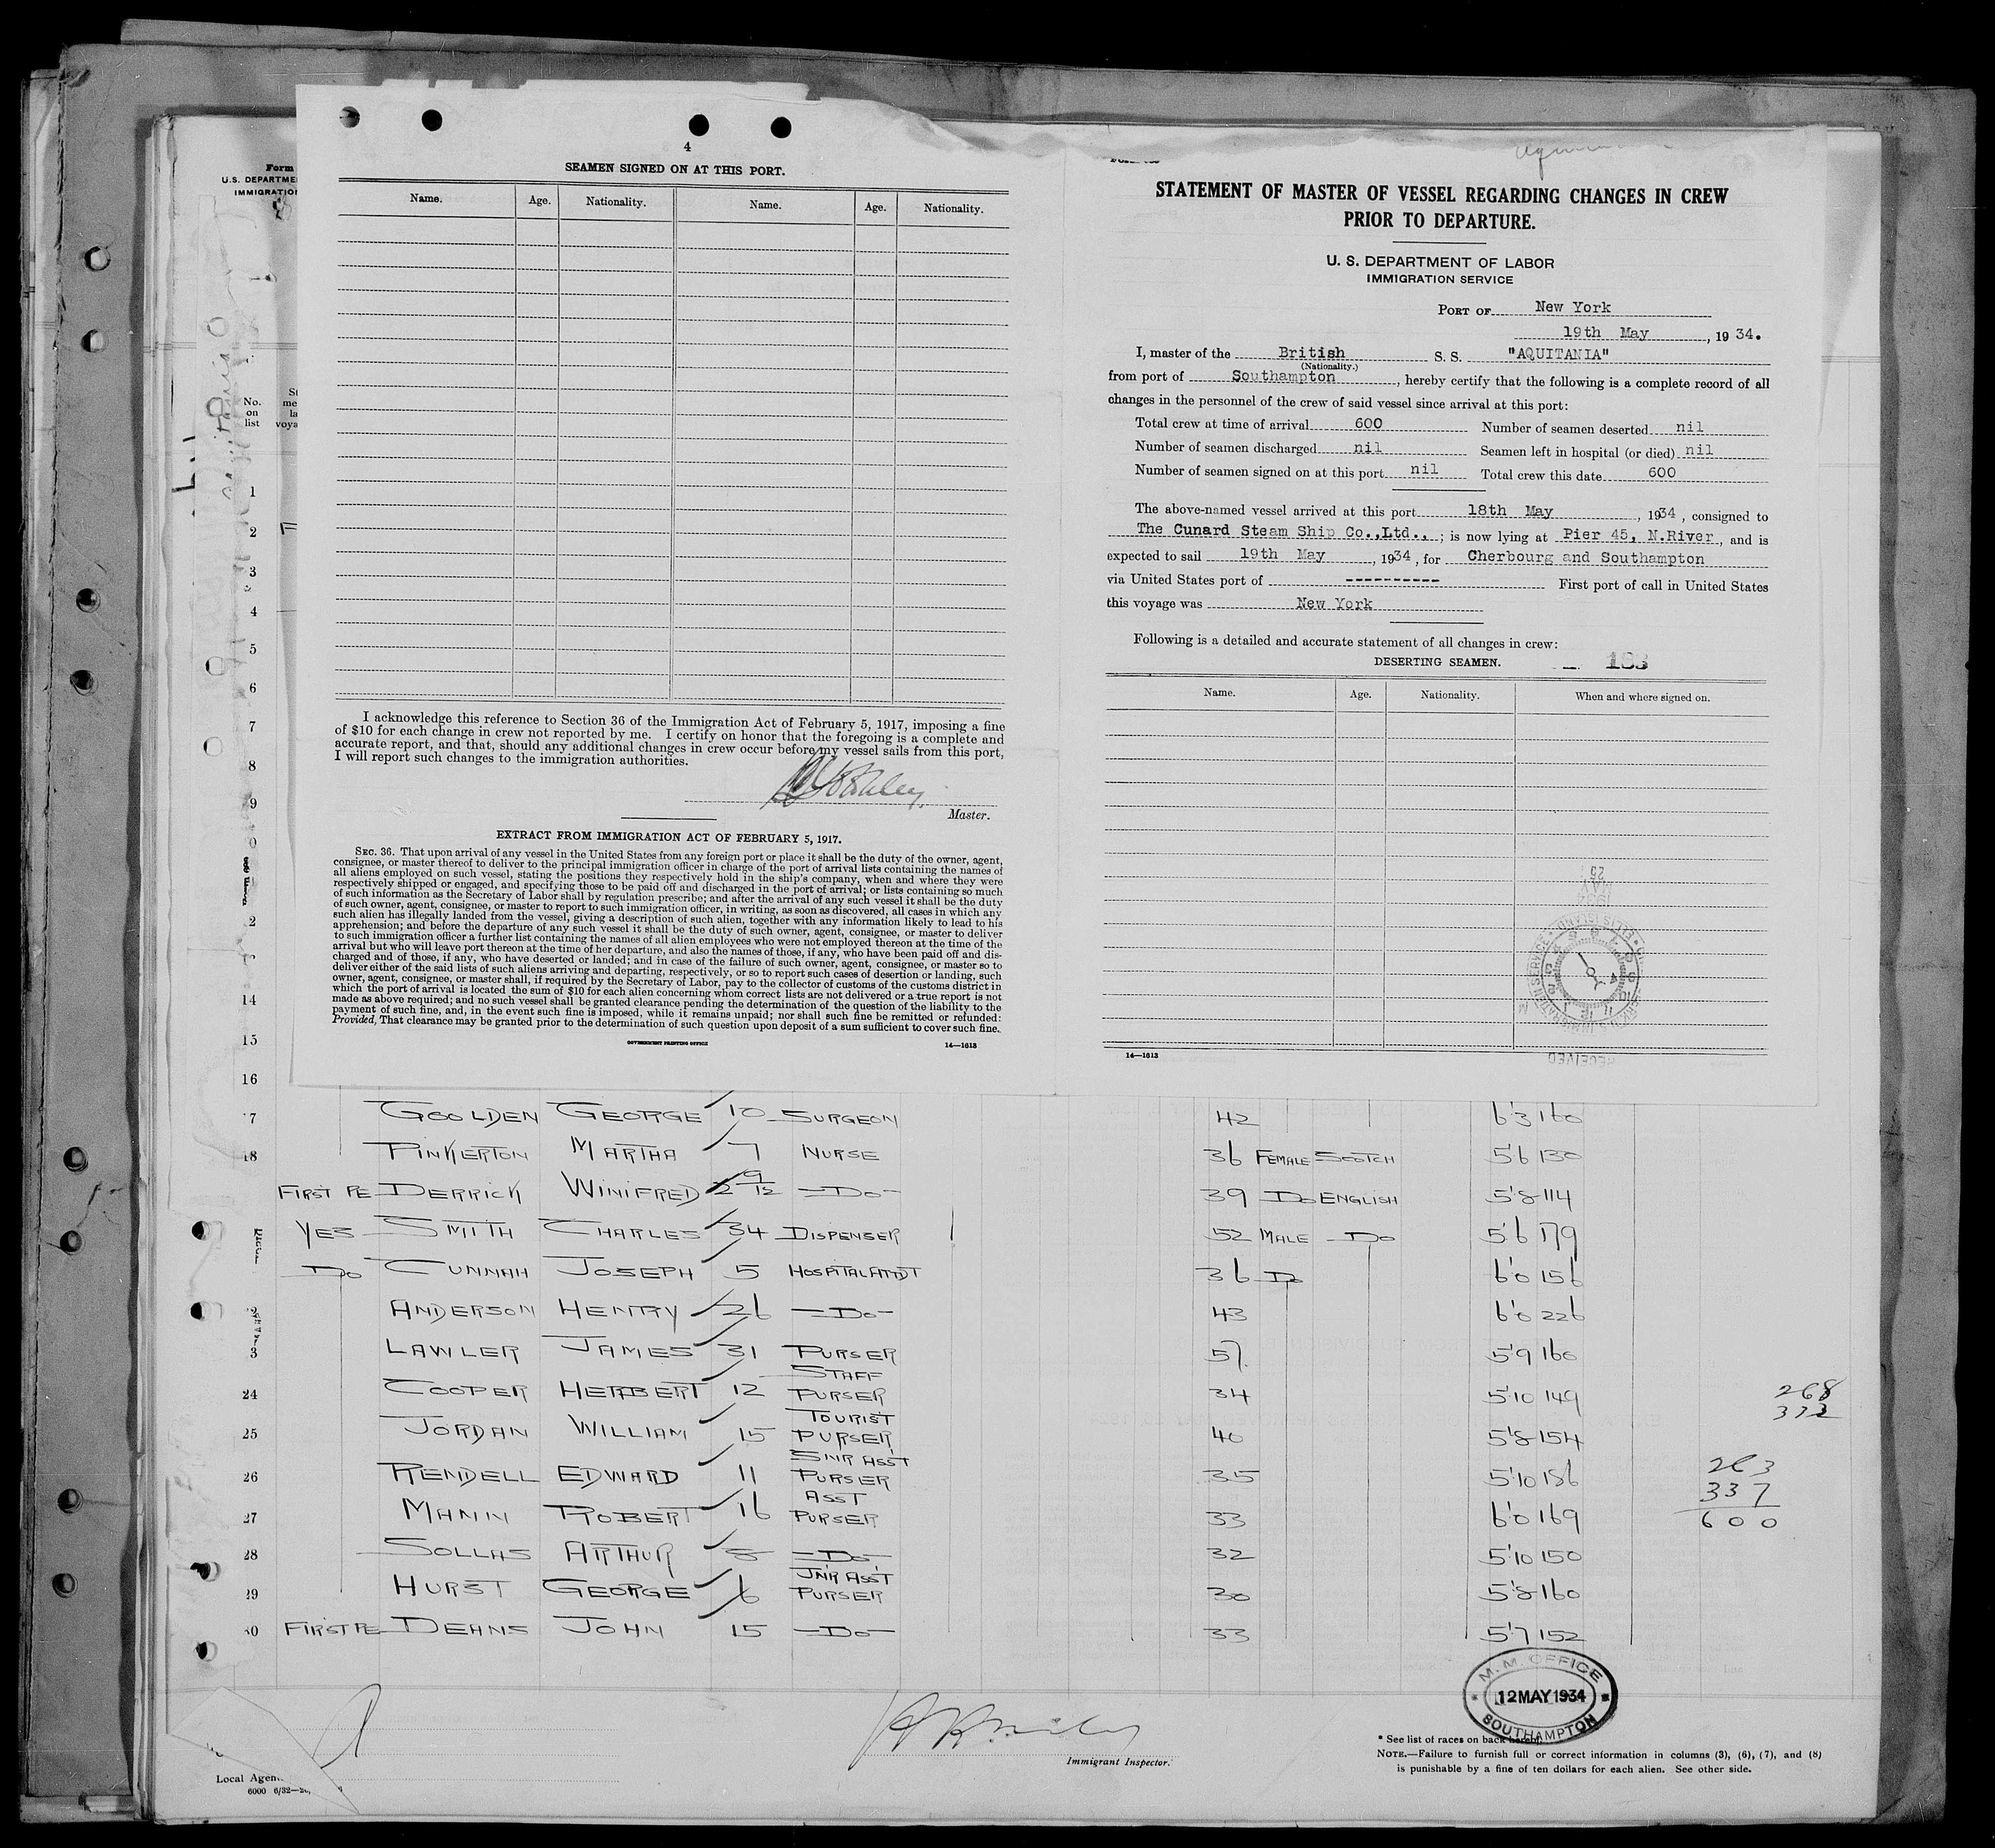 4
SEAMEN SIGNED ON AT THIS PORT.
Name. Age. Nationality. Name. Age. Nationality.
I acknowledge this reference to Section 36 of the Immigration Act of February 5, 1917, imposing a fine
of $10 for each change in crew not reported by me. I certify on honor that the foregoing is a complete and
accurate report, and that, should any additional changes in crew occur before my vessel sails from this port,
I will report such changes to the immigration authorities.
Master.
EXTRACT FROM IMMIGRATION ACT OF FEBRUARY 5, 1917.
SEC. 36. That upon arrival of any vessel in the United States from any foreign port or place it shall be the duty of the owner, agent,
consignee, or master thereof to deliver to the principal immigration officer in charge of the port of arrival lists containing the names of
all aliens employed on such vessel, stating the positions they respectively hold in the ship's company, when and where they were
respectively shipped or engaged, and specifying those to be paid off and discharged in the port of arrival; or lists containing so much
of such information as the Secretary of Labor shall by regulation prescribe; and after the arrival of any such vessel it shall be the duty
of such owner, agent, consignee, or master to report to such immigration officer, in writing, as soon as discovered, all cases in which any
such alien has illegally landed from the vessel, giving a description of such alien, together with any information likely to lead to his
apprehension; and before the departure of any such vessel it shall be the duty of such owner, agent, consignee, or master to deliver
to such immigration officer a further list containing the names of all alien employees who were not employed thereon at the time of the
arrival but who will leave port thereon at the time of her departure, and also the names of those, if any, who have been paid off and dis-
charged and of those, if any, who have deserted or landed; and in case of the failure of such owner, agent, consignee, or master so to
deliver either of the said lists of such aliens arriving and departing, respectively, or so to report such cases of desertion or landing, such
owner, agent, consignee, or master shall, if required by the Secretary of Labor, pay to the collector of customs of the customs district in
which the port of arrival is located the sum of $10 for each alien concerning whom correct lists are not delivered or a true report is not
made as above required; and no such vessel shall be granted clearance pending the determination of the question of the liability to the
payment of such fine, and, in the event such fine is imposed, while it remains unpaid; nor shall such fine be remitted or refunded:
Provided, That clearance may be granted prior to the determination of such question upon deposit of a sum sufficient to cover such fine.
GOVERNMENT PRINTING OFFICE 14—1613
STATEMENT OF MASTER OF VESSEL REGARDING CHANGES IN CREW
PRIOR TO DEPARTURE.
U. S. DEPARTMENT OF LABOR
IMMIGRATION SERVICE
PORT OF New York
19th May, 1934.
I, master of the British S. S. "AQUITANIA"
(Nationality.)
from port of Southampton, hereby certify that the following is a complete record of all
changes in the personnel of the crew of said vessel since arrival at this port:
Total crew at time of arrival 600 Number of seamen deserted nil
Number of seamen discharged nil Seamen left in hospital (or died) nil
Number of seamen signed on at this port nil Total crew this date 600
The above-named vessel arrived at this port 18th May, 1934, consigned to
The Cunard Steam Ship Co.,Ltd., ; is now lying at Pier 45, N.River, and is
expected to sail 19th May, 1934, for Cherbourg and Southampton
via United States port of ---------- First port of call in United States
this voyage was New York
Following is a detailed and accurate statement of all changes in crew:
DESERTING SEAMEN.
Name. Age. Nationality. When and where signed on.
RECEIVED
14—1613
Form
U.S. DEPARTME
IMMIGRATIO
No.
on
list
1
2
3
4
5
6
7
8
9
14
15
16
GOOLDEN GEORGE 10 SURGEON 42 6'3 160
PINKERTON MARTHA 7 NURSE 36 FEMALE SCOTCH 5'6 130
FIRST PE DERRICK WINIFRED 2 9/12 —DO— 39 DO ENGLISH 5'8 114
YES SMITH CHARLES 34 DISPENSER 52 MALE DO 5'6 179
DO CUNNAH JOSEPH 5 HOSPITAL ATTDT 36 DO 6'0 156
ANDERSON HENRY 26 —DO— 43 6'0 226
LAWLER JAMES 31 PURSER 57 5'9 160
24 COOPER HERBERT 12 STAFF PURSER 34 5'10 149
25 JORDAN WILLIAM 15 TOURIST PURSER 40 5'8 154
26 RENDELL EDWARD 11 SNR ASST PURSER 35 5'10 186
27 MANN ROBERT 16 ASST PURSER 33 6'0 169
28 SOLLAS ARTHUR 8 —DO— 32 5'10 150
29 HURST GEORGE 6 JNR ASST PURSER 30 5'8 160
FIRST PE DEANS JOHN 15 —DO— 33 5'7 152
268
337
600
M. M. OFFICE
12 MAY 1934
SOUTHAMPTON
Immigrant Inspector.
Local Agen
6000 6/32
* See list of races on back hereof.
NOTE.—Failure to furnish full or correct information in columns (3), (6), (7), and (8)
is punishable by a fine of ten dollars for each alien. See other side.